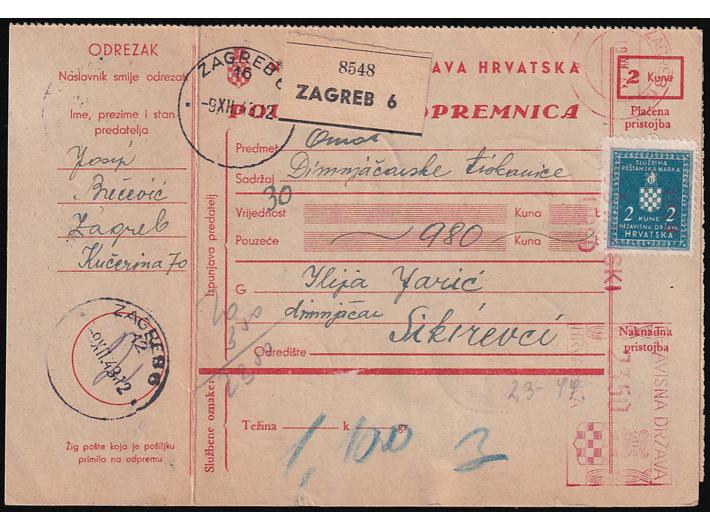 ODREZAK
Naslovnik smije odrezak
Ime, prezime i stan
predatelja
Josip
Bečević
Zagreb
Kučerina 70
ZAGREB 6
12
-9.XII.43.12
Žig pošte koja je pošiljku
primila na odpremu
ZAGREB 6
16
-9XII.43.12
8548
ZAGREB 6
AVA HRVATSKA
OPREMNICA
2 Kune
Plaćena
pristojba
ZAGREB
Predmet
Omot
Sadržaj
Dimnjačarske tiskanice
30
Vrijednost
Kuna
Pouzeće
980
Kuna
Izpunjava predatelj
G
Ilija Jarić
dimnjačar
Sikirevci
Odredište
SLUŽBENA
POŠTANSKA MARKA
2 2
KUNE
NEZAVISNA DRŽAVA
HRVATSKA
Naknadna
pristojba
23-
Službene oznake:
Težina
k
gr.
1,100
3
AVISNA DRŽAVA
HRVA
23.50